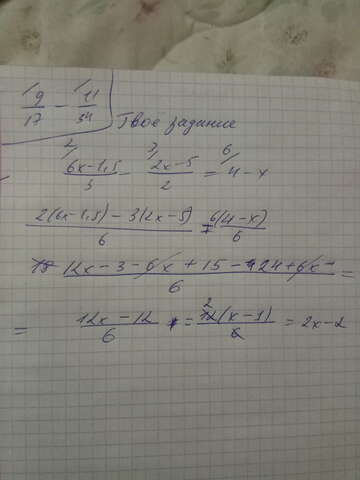 9/17 - 11/34
Твое задание
2 3 6
6x-1,5/3 - 2x-5/2 = 4-x
2(6x-1,5)-3(2x-5)/6 = 6(4-x)/6
12x-3-6x+15-24+6x/6 =
= 12x-12/6 = 12(x-1)/6 = 2x-2